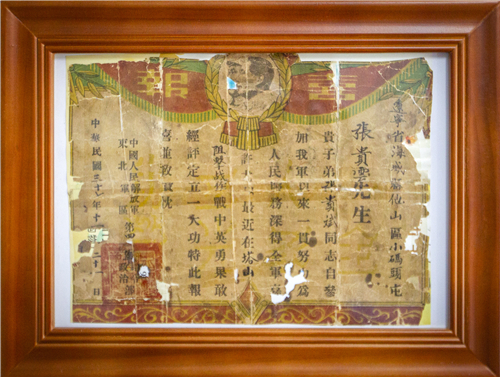 喜報
遼寧省海城縣山區小碼頭屯
張貴先生
貴子弟張貴斌同志自參
加我軍以來一貫努力為
人民服務深得全軍嘉
許最近在塔山
阻擊作戰中英勇果敢
經評定立一大功特此報
喜並致敬祝
中國人民解放軍第四縱政治部
東北軍區
中華民國三十七年十月二十一日